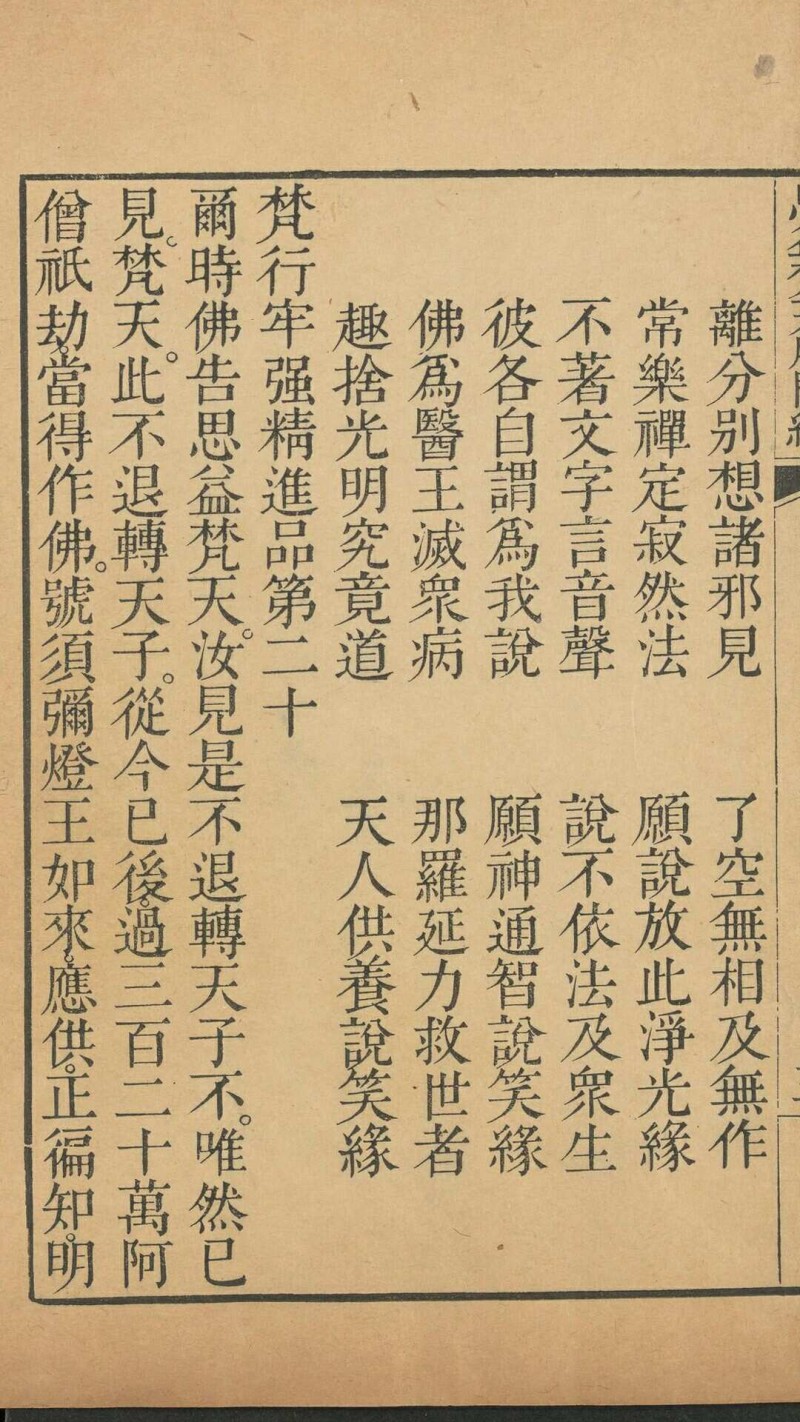 離分別想諸邪見　了空無相及無作
常樂禪定寂然法　願說放此淨光緣
不著文字言音聲　說不依法及衆生
彼各自謂爲我說　願神通智說笑緣
佛爲醫王滅衆病　那羅延力救世者
趣捨光明究竟道　天人供養說笑緣
梵行牢强精進品第二十
爾時佛告思益梵天。汝見是不退轉天子不。唯然已
見。梵天。此不退轉天子。從今已後。過三百二十萬阿
僧祇劫。當得作佛。號須彌燈王如來。應供。正徧知。明